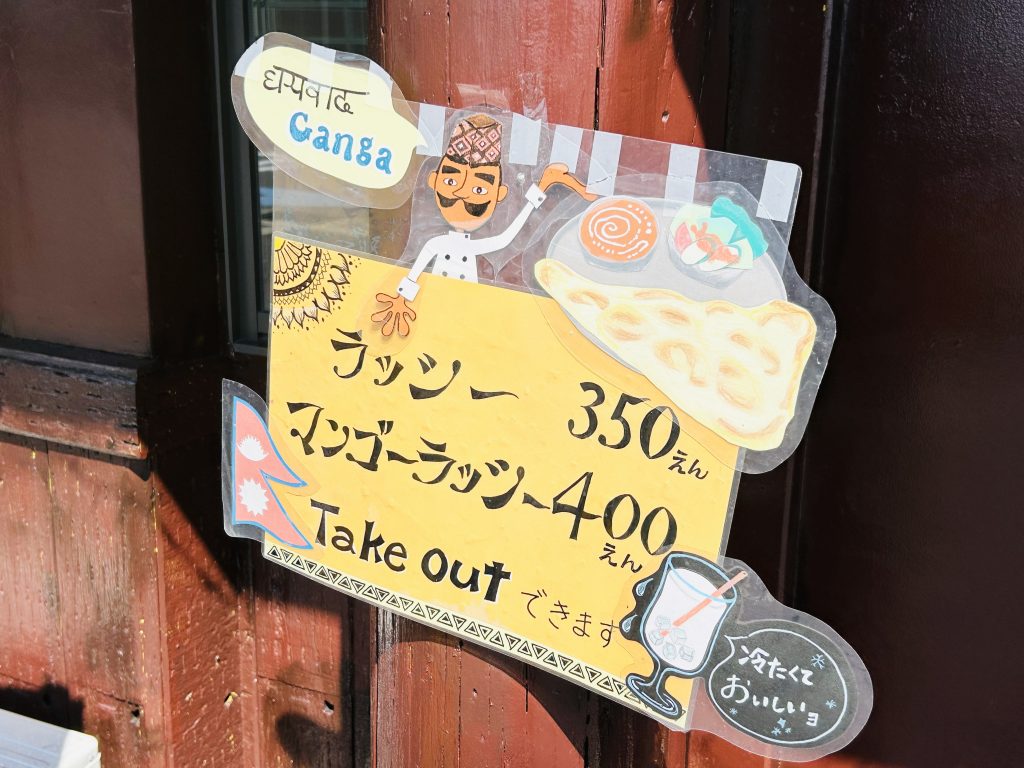 धन्यवाद
Ganga
ラッシー 350えん
マンゴーラッシー 400えん
Take out できます
冷たくて
おいしいョ